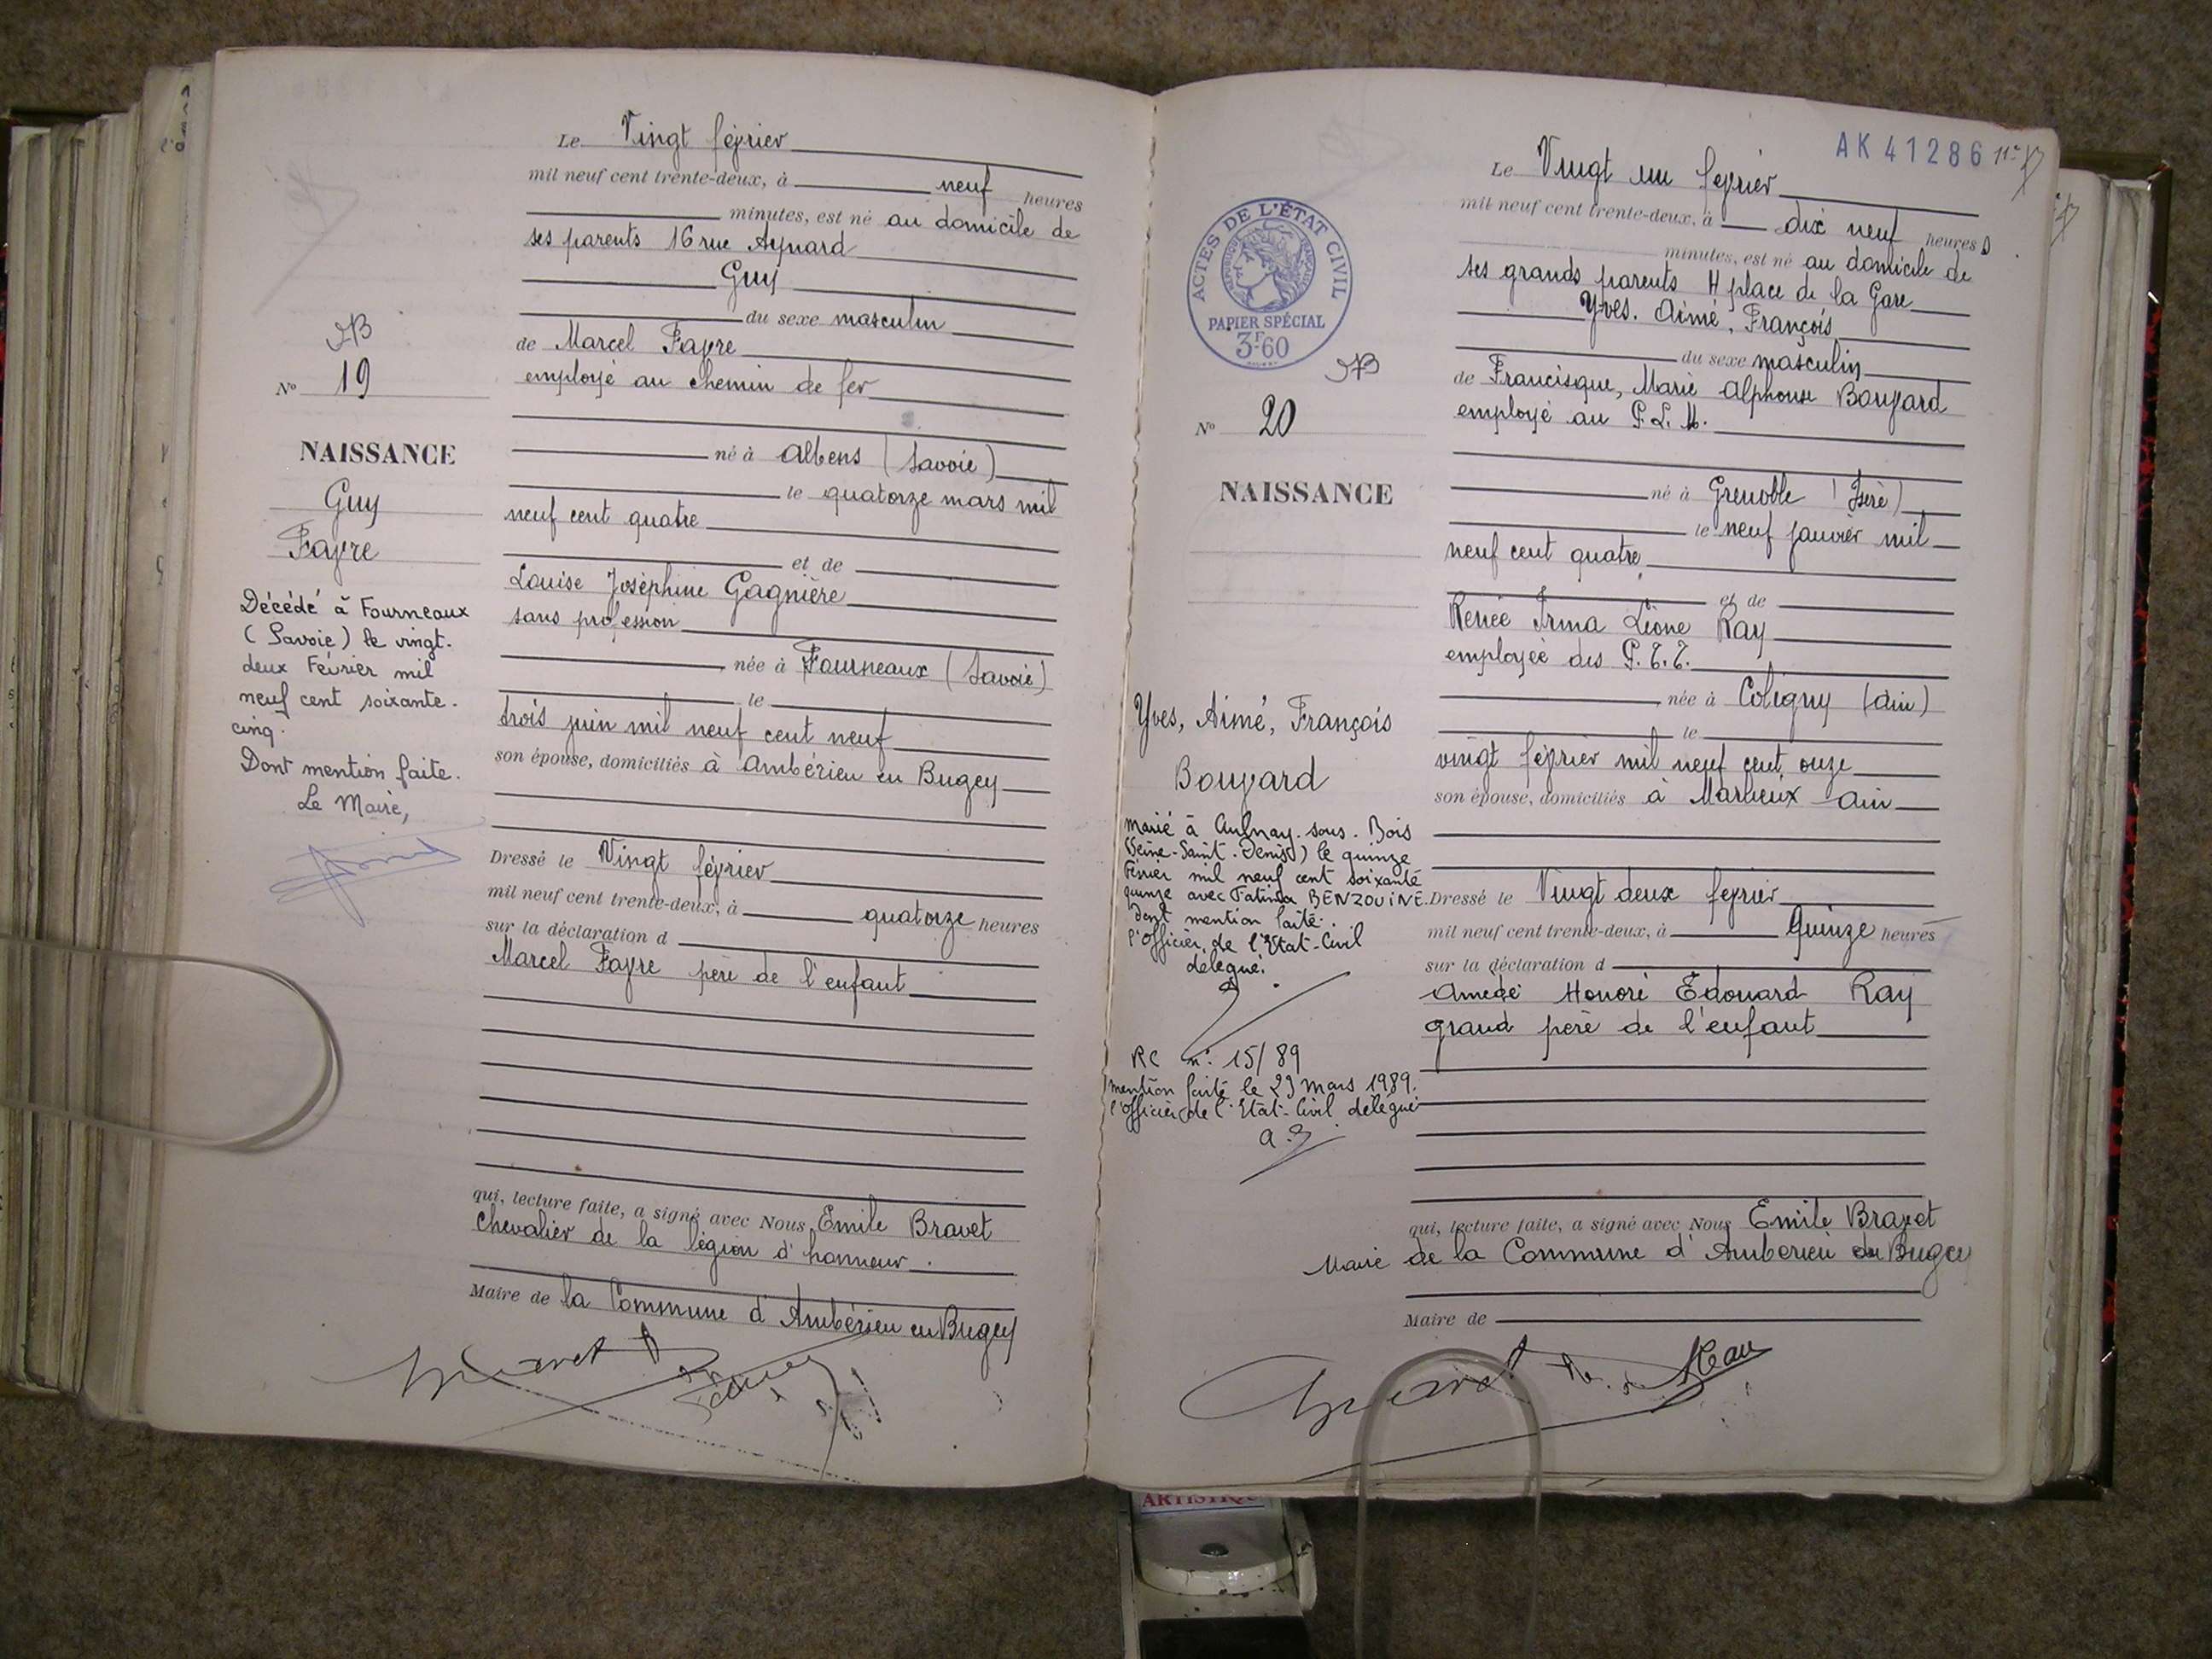 Le Vingt février
mil neuf cent trente-deux, à neuf heures
minutes, est né au domicile de
ses parents 16 rue Aynard
Guy
du sexe masculin
de Marcel Favre
employé au chemin de fer
né à Albens (Savoie)
le quatorze mars mil
neuf cent quatre
et de
Louise Joséphine Gagnière
sans profession
née à Fourneaux (Savoie)
le
trois juin mil neuf cent neuf
son épouse, domiciliés à Ambérieu en Bugey
Dressé le Vingt février
mil neuf cent trente-deux, à quatorze heures
sur la déclaration d
Marcel Favre père de l'enfant
qui, lecture faite, a signé avec Nous, Emile Bravet
Chevalier de la légion d'honneur.
Maire de la Commune d'Ambérieu en Bugey
N° 19
NAISSANCE
Guy
Favre
Décédé à Fourneaux
(Savoie) le vingt.
deux Février mil
neuf cent soixante.
cinq.
Dont mention faite.
Le Maire,
AK 41286
Le Vingt un février
mil neuf cent trente-deux, à dix neuf heures
minutes, est né au domicile de
ses grands parents 4 place de la Gare
Yves. Aimé, François
du sexe masculin
de Francisque, Marie Alphonse Bouvard
employé au P.L.M.
né à Grenoble (Isère)
le neuf janvier mil
neuf cent quatre
et de
Renée Irma Léone Ray
employée des P.T.T.
née à Coligny (Ain)
le
vingt février mil neuf cent onze
son épouse, domiciliés à Marlieux Ain
Dressé le Vingt deux février
mil neuf cent trente-deux, à Quinze heures
sur la déclaration d
Amédé Honoré Edouard Ray
grand père de l'enfant
qui, lecture faite, a signé avec Nous Emile Bravet
Maire de la Commune d'Amberieu en Bugey
Maire de
ACTES DE L'ÉTAT CIVIL
RÉPUBLIQUE FRANÇAISE
PAPIER SPÉCIAL
3F60
N° 20
NAISSANCE
Yves, Aimé, François
Bouvard
marié à Aulnay. sous. Bois
(Seine-Saint-Denis) le quinze
Février mil neuf cent soixante
quinze avec Fatima BENZOUINE.
Dont mention faite.
l'Officier de l'Etat-Civil
délégué.
RC n° 15/89
mention faite le 29 mars 1989.
l'officier de l'Etat-Civil délégué
ARTISTIQUE